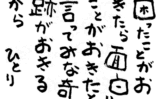 困ったことがお
きたら面白
ことがおきた
言ってみな奇
跡がおきる
から ひとり